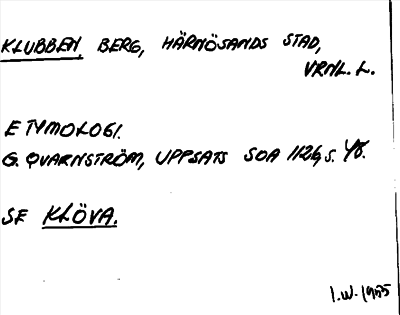 KLUBBEN, BERG, HÄRNÖSANDS STAD,
VRNL. L.
ETYMOLOGI.
G. QVARNSTRÖM, UPPSATS SOA 1126, s.
SE KLÖVA.
I.W. 1955